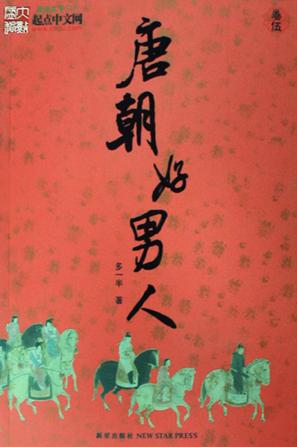 起点中文网
卷伍
唐朝好男人
多一半 著
新星出版社 NEW STAR PRESS